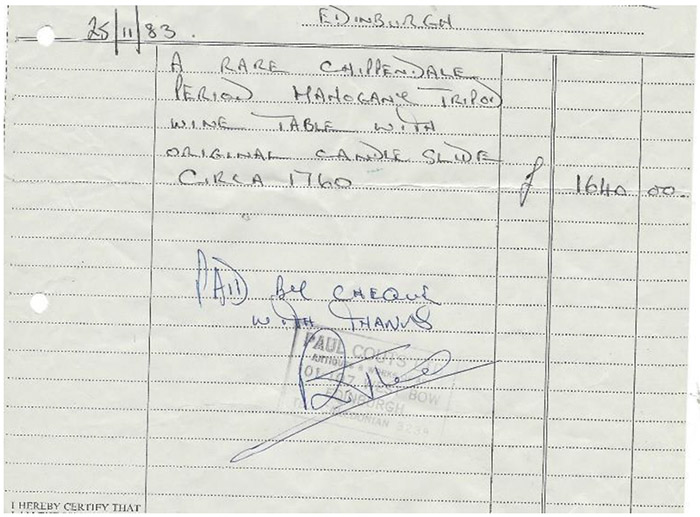 EDINBURGH
25/11/83.
A RARE CHIPPENDALE
PERIOD MAHOGANY TRIPOD
WINE TABLE WITH
ORIGINAL CANDLE SLIDE
CIRCA 1760 £ 1640 00.
PAID BY CHEQUE
WITH THANKS
PAUL COUTS
ANTIQUE & WORKS
BOW
EDINBURGH
I HEREBY CERTIFY THAT